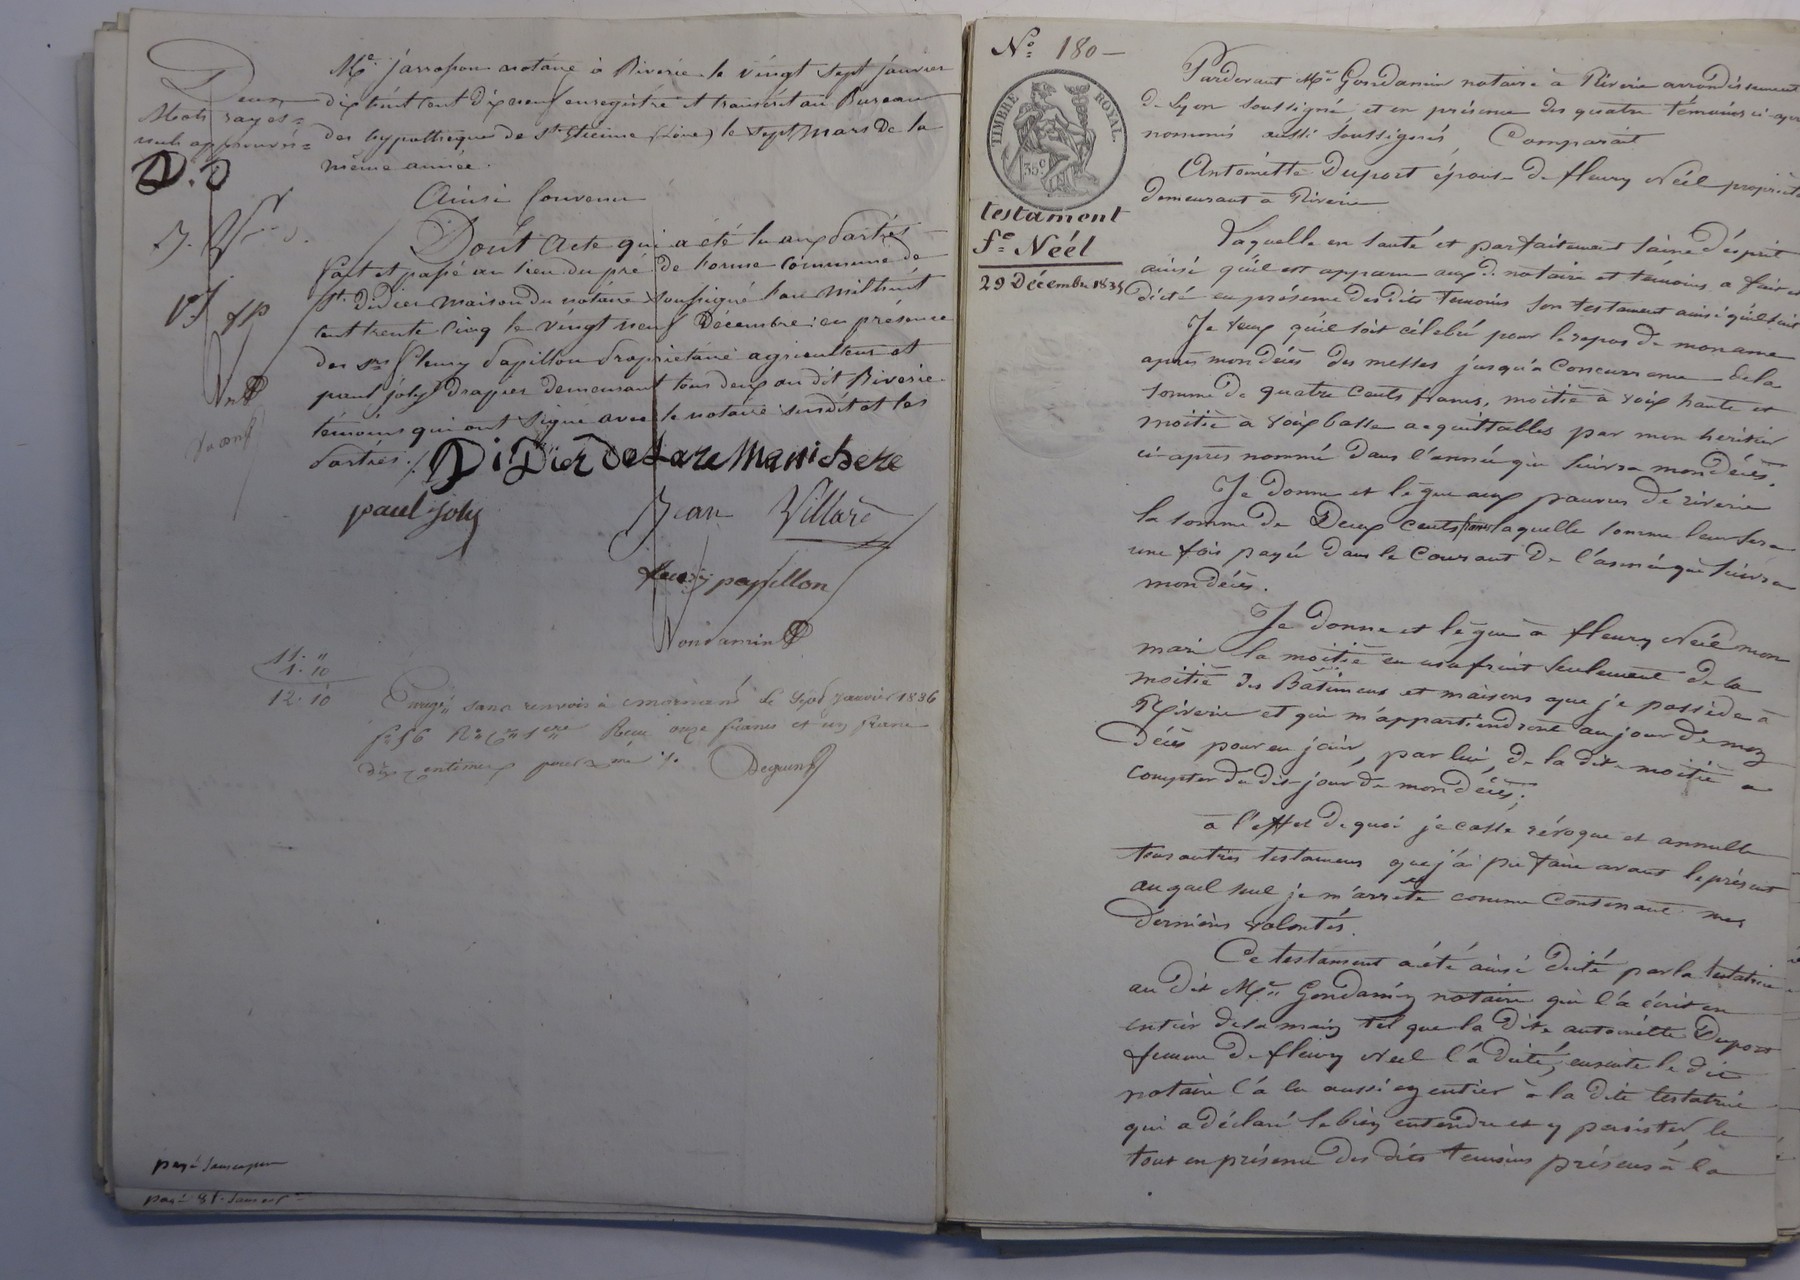 Me. jarrosson notaire à Riverie le vingt sept janvier
dix huit cent dix neuf enregistré et transcrit au Bureau
des hypothèques de St. Etienne (Loire) le sept mars de la
même année.
Deux
Mots rayés =
nuls approuvés =
D. D
J. V
P. J fP
Ainsi Convenu
Dont Acte qui a été lu aux Parties
Fait et passé au lieu du pré de forme Commune de
St. Didier maison du notaire Soussigné l'an mil huit
cent trente Cinq le vingt neuf Décembre: en présence
des srs fleury Papillon Propriétaire agriculteur et
paul joly Drapier demeurant tous deux au dit Riverie
témoins qui ont Signé avec le notaire susdit et les
Parties ./.
DiDier DeLare Manichere
paul joly
Jean Villard
fleury papillon
Gondamin
11. "
1. 10
12. 10
Enregé. sans renvoi à mornant le Sept Janvier 1836
fo 56 Reçu onze francs et un franc
dix centimes pour Dme ./.
payé
payé
No. 180 –
TIMBRE ROYAL
35c
testament
fe. Néél
29 Décembre 1835
Pardevant Me. Gondamin notaire à Riverie arrondissement
de Lyon Soussigné et en présence des quatre témoins ci-après
nommés aussi Soussignés, Comparait
Antoinette Duport épouse de fleury Néél propriét
demeurant à Riverie
Laquelle en Santé et parfaitement Saine d'ésprit
ainsi qu'il est apparu aux d. notaire et temoins, a fait et
dicté en présence des dits temoins Son testament ainsi qu'il Suit
Je veux qu'il soit célébré pour le repos de mon ame
après mon décès des messes jusqu'à Concurrence de la
somme de quatre Cents francs, moitié à voix haute et
moitié à voix basse acquittables par mon héritier
ci-après nommé Dans l'année qui Suivra mon décès.
Je Donne et lègue aux pauvres de riverie
la somme de Deux Cents francs laquelle somme leur sera
une fois payée Dans le Courant De l'année qui Suivra
mon décès.
Je Donne et lègue à fleury Néél mon
mari la moitié en usufruit Seulement de la
moitié des Batimens et maisons que je possède à
Riverie et qui m'appartiendront au jour De mon
Décès pour en jouir, par lui, de la dite moitié a
compter du dit jour De mon décès;
à l'effet de quoi je casse révoque et annulle
tous autres testamens que j'ai pu faire avant le présent
auquel seul je m'arrête comme Contenant mes
Dernières volontés.
Ce testament a été ainsi dicté par la testatrice
au dit Me. Gondamin notaire qui l'a écrit en
entier de sa main tel que la dite antoinette Duport
femme De fleury Néel l'a dicté, ensuite le dit
notaire l'a lu aussi en entier à la dite testatrice
qui a déclaré le bien entendre et y persister, le
tout en présence des dits temoins présens à la